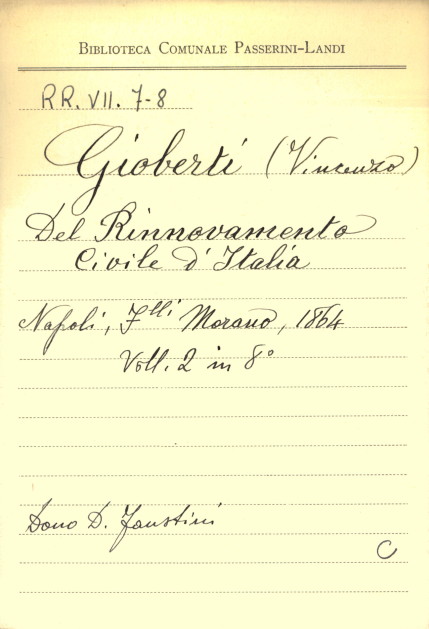 Biblioteca Comunale Passerini-Landi
RR. VII. 7-8
Gioberti (Vincenzo)
Del Rinnovamento
Civile d'Italia
Napoli, F.lli Morano, 1864
Voll. 2 in 8°
Dono D. Faustini
C